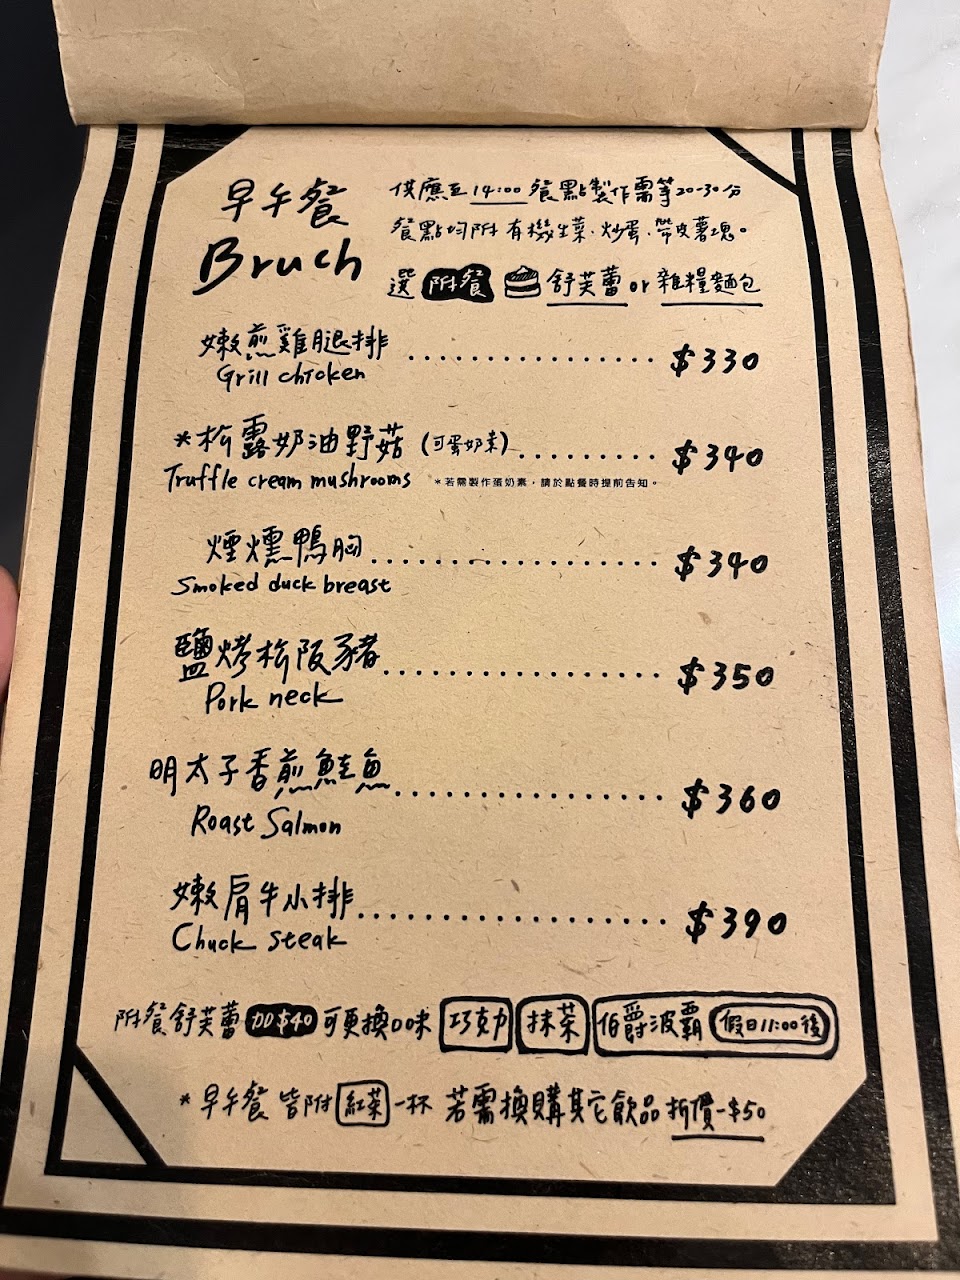 早午餐
Bruch
供應至14:00 餐點製作需等20-30分
餐點均附有機生菜、炒蛋、帶皮薯塊。
選 附餐 舒芙蕾 or 雜糧麵包
嫩煎雞腿排 $330
Grill chicken
*松露奶油野菇(可蛋奶素) $340
Truffle cream mushrooms *若需製作蛋奶素,請於點餐時提前告知。
煙燻鴨胸 $340
Smoked duck breast
鹽烤松阪豬 $350
Pork neck
明太子香煎鮭魚 $360
Roast Salmon
嫩肩牛小排 $390
Chuck steak
附餐舒芙蕾 加$40 可更換口味 巧克力 抹茶 伯爵波霸 假日11:00後
*早午餐 皆附 紅茶 一杯 若需換購其它飲品 折價-$50